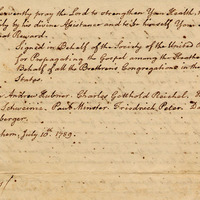 fervently pray the Lord to strengthen Your Health,
ly by his divine Assistance and to be himself Your
eat Reward.
Signed in Behalf of the Society of the United
For Propagating the Gospel among the Heathen
Behalf of all the Brethren's Congregations in the
States.
Andrew Hubner. Charles Gotthold Reichel.
Schweiniz. Paul Münster. Friedrich Peter. Da
berger.
hem, July 10th 1789.